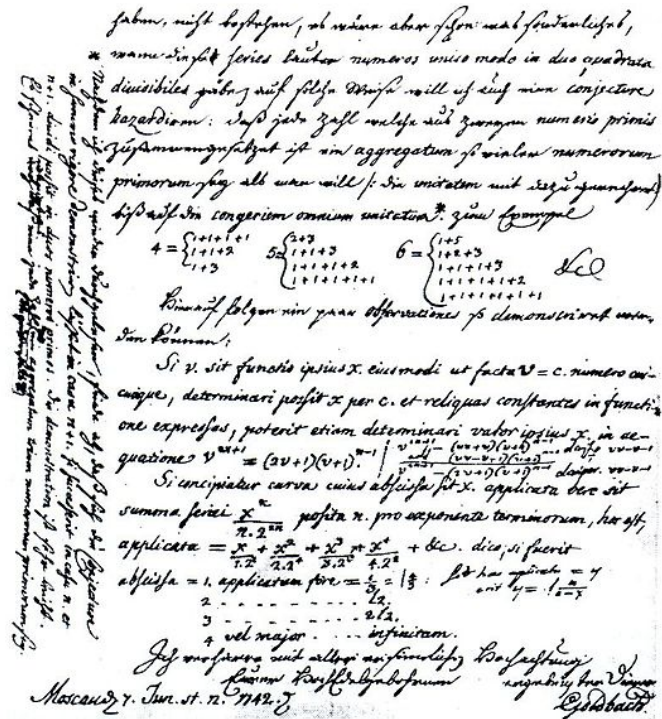 haben, nicht bestehen, es wäre aber schon was sonderliches,
wann diese series lauter numeros unico modo in duo quadrata
divisibiles gäbe, auf solche Weise will ich auch eine conjecture
hazardiren: daß jede Zahl welche aus zweyen numeris primis
zusammengesetzet ist ein aggregatum so vieler numerorum
primorum sey als man will /: die unitatem mit dazu gerechnet /
biß auf die congeriem omnium unitatum*. zum Exempel
4 = { 1+1+1+1
1+1+2
1+3
5 = { 2+3
1+1+3
1+1+1+2
1+1+1+1+1
6 = { 1+5
1+2+3
1+1+1+3
1+1+1+1+2
1+1+1+1+1+1
&c
Hierauf folgen ein paar observationes so demonstriret wer-
den können:
Si v. sit functio ipsius x. eiusmodi ut facta v = c. numero cui-
cunque, determinari possit x per c. et reliquas constantes in functi-
one expressas, poterit etiam determinari valor ipsius x. in ae-
quatione v^2n+1 = (2v+1)(v+1)^n-1
Si concipiatur curva cuius abscissa sit x. applicata vero sit
summa seriei x^n / n.2^2n posita n. pro exponente terminorum, hoc est,
applicata = x/1.2^2 + x^2/2.2^4 + x^3/3.2^6 + x^4/4.2^8 + &c. dico, si fuerit
abscissa = 1. applicatam fore = l 4/3
2 . . . . . . . . l2.
3 . . . . . . . . 2l2.
4 vel major . . . . infinitam.
Ich verharre mit aller ersinnlichen Hochachtung
Eurer Hochedelgebohrnen ergebenster Diener
Moscau d. 7. Jun. st. n. 1742. Goldbach.
* Nachdem ich dieses wieder durchgelesen, finde ich, daß sich die conjecture
in summo rigore demonstriren lässet in casu n+1. si successerit in casu n. et
n+1. dividi possit in duos numeros primos. Die demonstration ist sehr leicht.
Es scheinet wenigstens, daß eine jede Zahl aggregatum trium numerorum primorum sey.